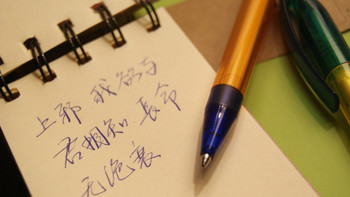 上邪 我欲与
君相知 長命
无绝衰